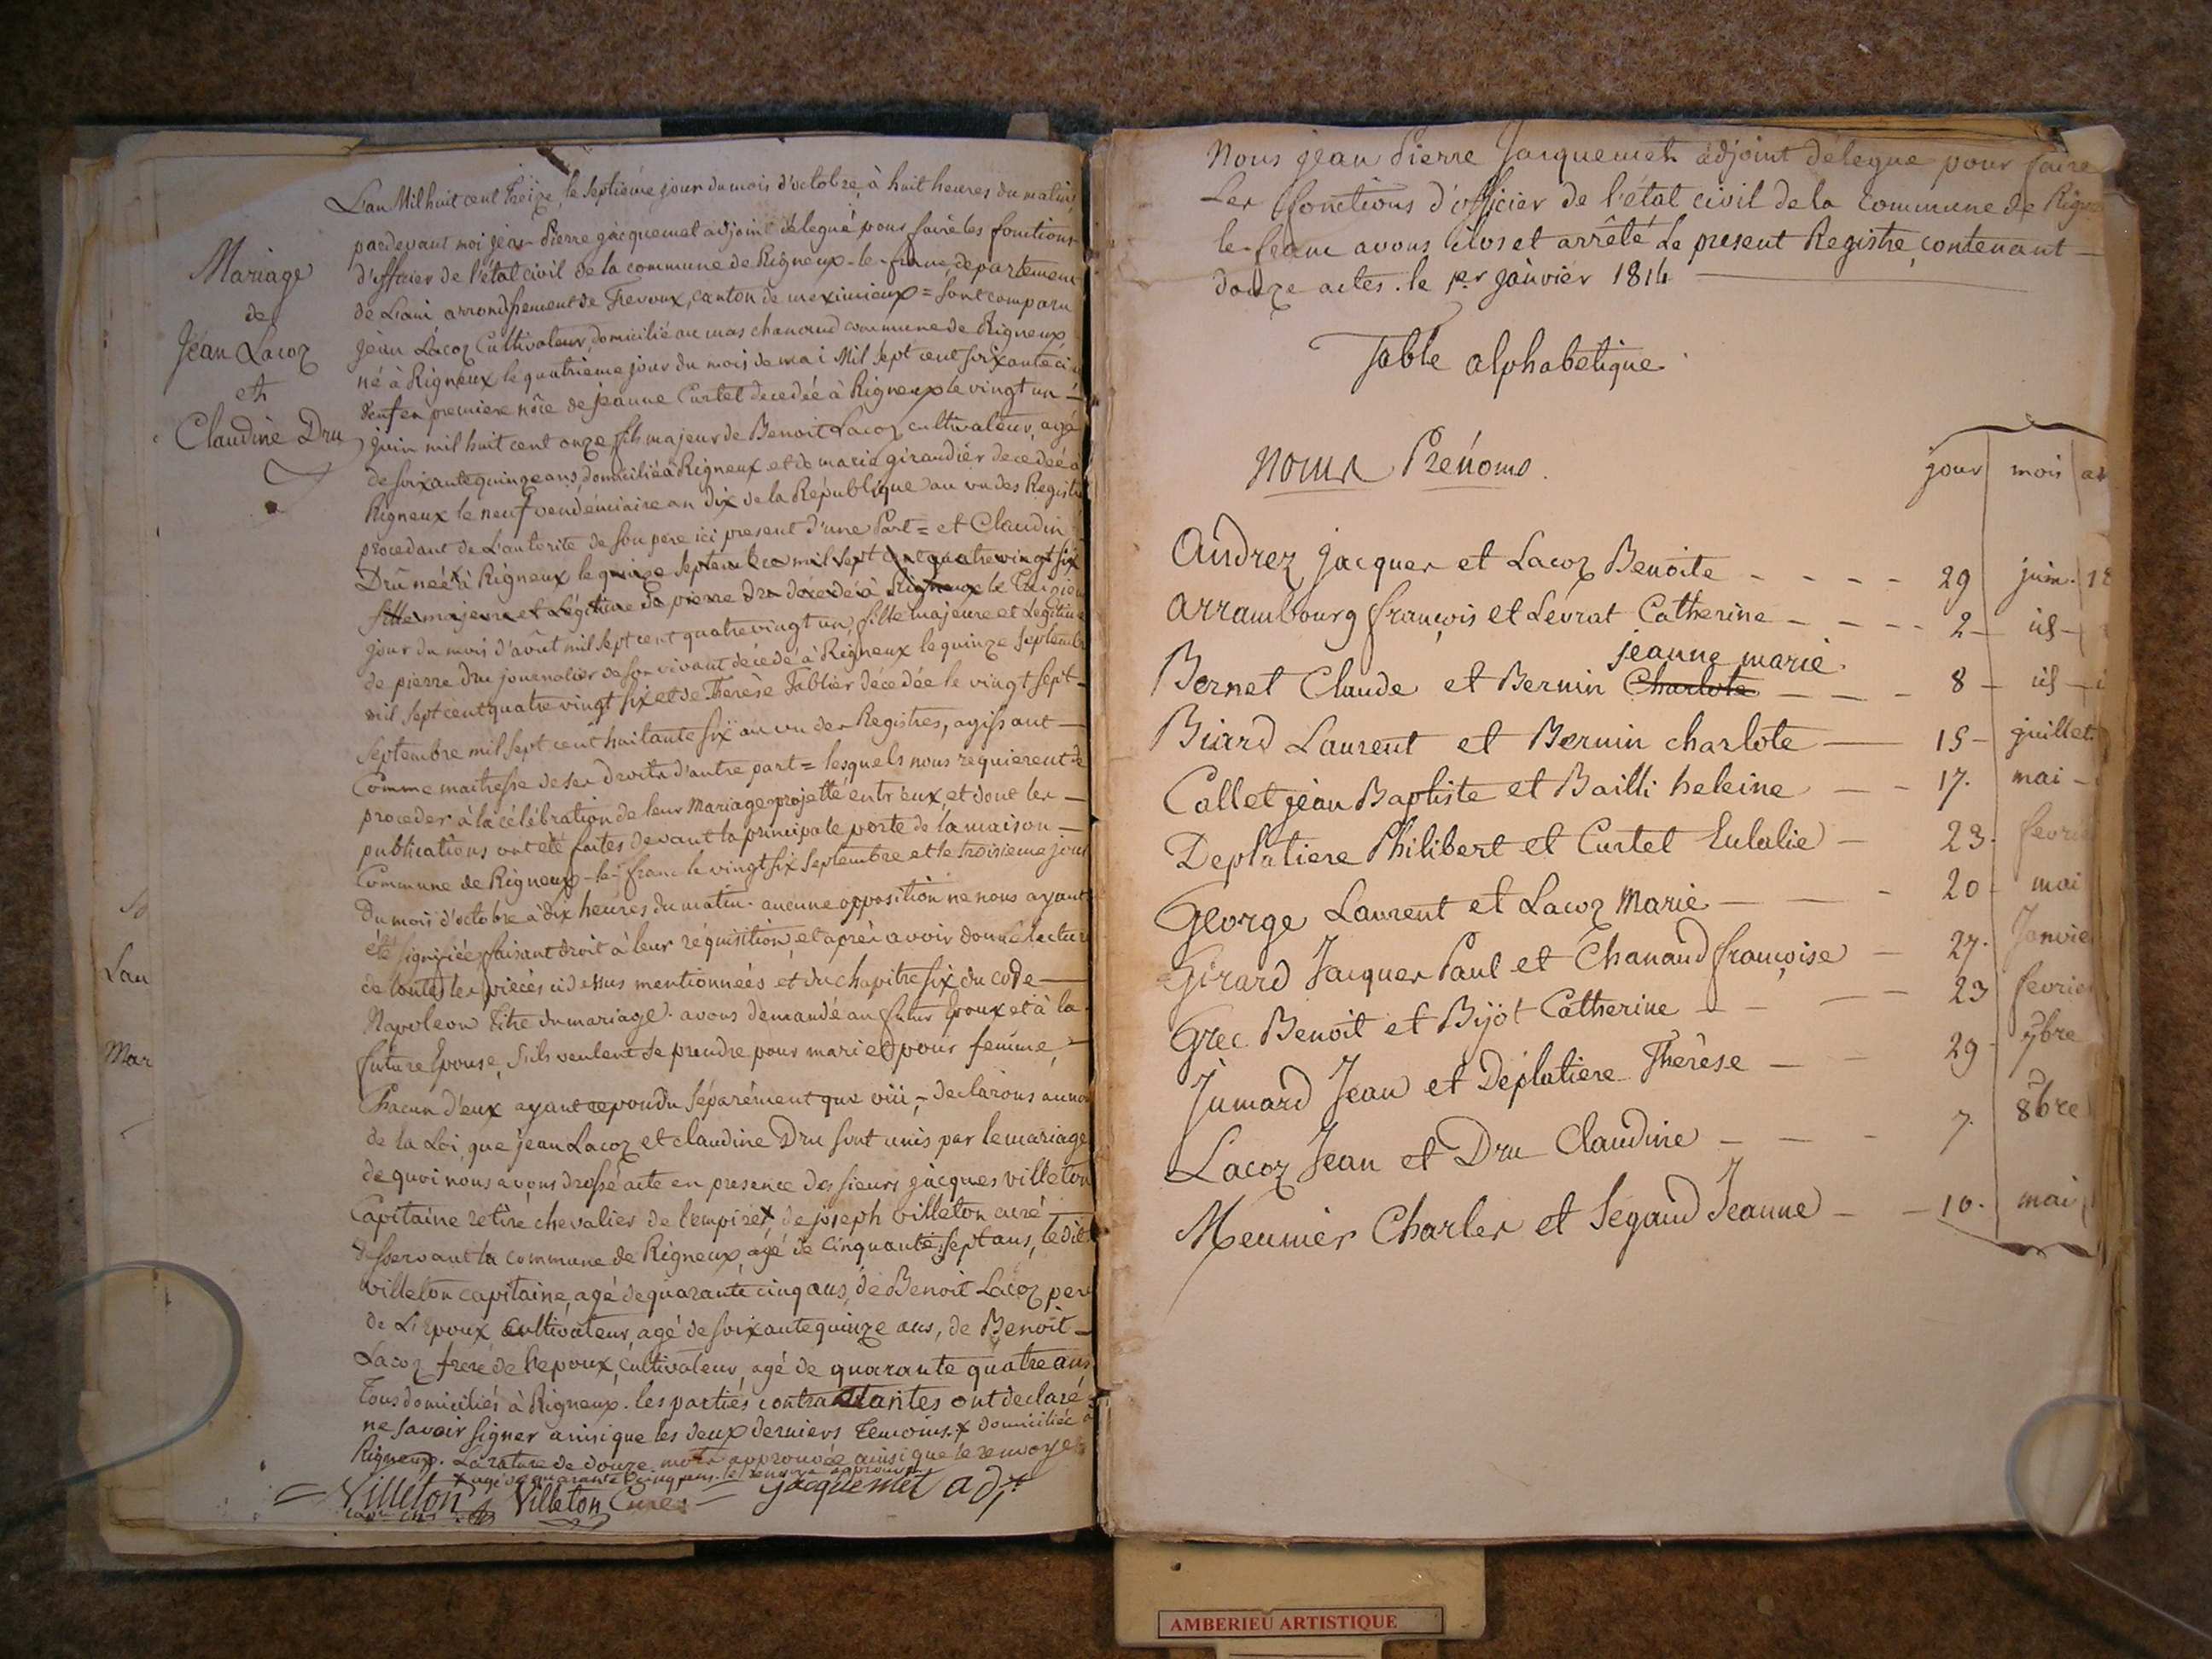 L'an Mil huit cent Treize, le Septieme jour du mois d'octobre, à huit heures du matin,
pardevant moi jean Pierre jacquemet adjoint délegué pour faire les fonctions
d'officier de l'état civil de la commune de Rigneux-le-franc, departement
de L'ain arrondissement de Trevoux, canton de meximieux = sont comparu
jean Lacoz Cultivateur, domicilié au mas chanaud commune de Rigneux
né à Rigneux le quatrieme jour du mois de mai Mil Sept cent soixante
veuf en premiere nôce de jeanne Curtet decedée à Rigneux le vingt un
juin mil huit cent onze fils majeur de Benoit Lacoz cultivateur, agé
de soixante quinze ans, domicilié à Rigneux et de marie giraudier decedeé à
Rigneux le neuf vendémiaire an dix de la République au vu des Registres
procedant de L'autorité de son pere ici present d'une Part = et Claudine
Dru née à Rigneux le quinze Septembre mil Sept cent quatre vingt six
fille majeure et Légitime de pierre dru décédé à Rigneux le
jour du mois d'août mil Sept cent quatre vingt un, fille majeure et Legitime
de pierre Dru journalier de son vivant décédé à Rigneux le quinze Septembre
mil Sept cent quatre vingt six et de Therèse Tablier décedée le vingt sept
Septembre mil sept cent huitante six au vu des Registres, agissant
Comme maitresse de ses droits d'autre part = lesquels nous requierent de
proceder à la célébration de leur Mariage projetté entr'eux, et dont les
publications ont été faites devant la principale porte de la maison
Commune de Rigneux-le-franc le vingt six Septembre et le troisieme jour
Du mois d'octobre à dix heures du matin. aucune opposition ne nous ayant
été signifiée, faisant droit à leur réquisition, et après avoir donné lecture
de toutes les pièces ci dessus mentionneés et du chapitre six du code
Napoleon titre du mariage. avons demandé au futur Epoux et à la
future Epouse, S'ils veulent se prendre pour mari et pour femme,
Chacun d'eux ayant repondu Séparément que oüi, declarons au nom
de la Loi, que jean Lacoz et claudine Dru sont unis par le mariage
de quoi nous avons drossé acte en presence des sieurs jacques villeton
Capitaine retiré chevalier de l'empire x, de joseph villeton curé
desservant la commune de Rigneux, agé de cinquante sept ans, ledit
villeton capitaine, agé de quarante cinq ans, de Benoit Lacoz pere
de L'Epoux cultivateur, agé de soixante quinze ans, de Benoit
Lacoz frere de l'epoux, cultivateur, agé de quarante quatre ans
Tous domiciliés à Rigneux. les parties contractantes ont declaré
ne savoir signer ainsi que les deux derniers Temoins. x domiciliée à
Rigneux. La rature de douze mots approuvée ainsi que le renvoye
x agé de quarante cinq ans. le renvoye approuvé
Villeton Villeton Curé jacquemet adj.t
Mariage
de
Jean Lacoz
et
Claudine Dru
Lau
Mar
Nous jean Pierre Jacquemet adjoint délegué pour faire
Les fonctions d'officier de l'état civil de la Commune de
le-franc avons clos et arrêté Le present Registre, contenant
douze actes. le 1.er janvier 1814
Table alphabetique
Noms Prénoms. jour mois an
Andrez jacques et Lacoz Benoite 29 juin. 18
Arrambourg françois et Levrat Catherine 2 id
jeanne marie
Bernet Claude et Bernin Charlote 8 id
Biard Laurent et Bernin charlote 15 juillet
Collet jean Baptiste et Bailli heleine 17. mai
Deplatiere Philibert et Curtet Eulalie 23. fevri
George Laurent et Lacoz Marie 20 mai
Girard Jacques Paul et Chanaud françoise 27. Janvie
Grec Benoit et Bijot Catherine 23 fevrie
Jumard Jean et Deplatiere Thérèse 29 7bre
Lacoz Jean et Dru Claudine 7. 8bre
Meunier Charles et Segaud Jeanne 10. mai
AMBERIEU ARTISTIQUE